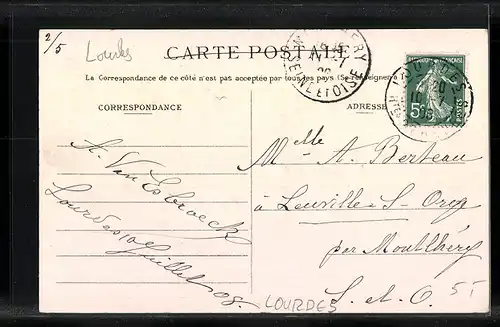 2/5
Lourdes
CARTE POSTALE
La Correspondance de ce côté n'est pas acceptée par tous les pays (Se renseigner à
CORRESPONDANCE
ADRESSE
RÉPUBLIQUE FRANÇAISE
5c
POSTES
SEINE ET OISE
LOURDES
Melle A. Berteau
à Leuville-S-Orge
par Montlhéry
S. et O.
A. Van Esbroeck
Lourdes 10
Juillet 08.
LOURDES
5T